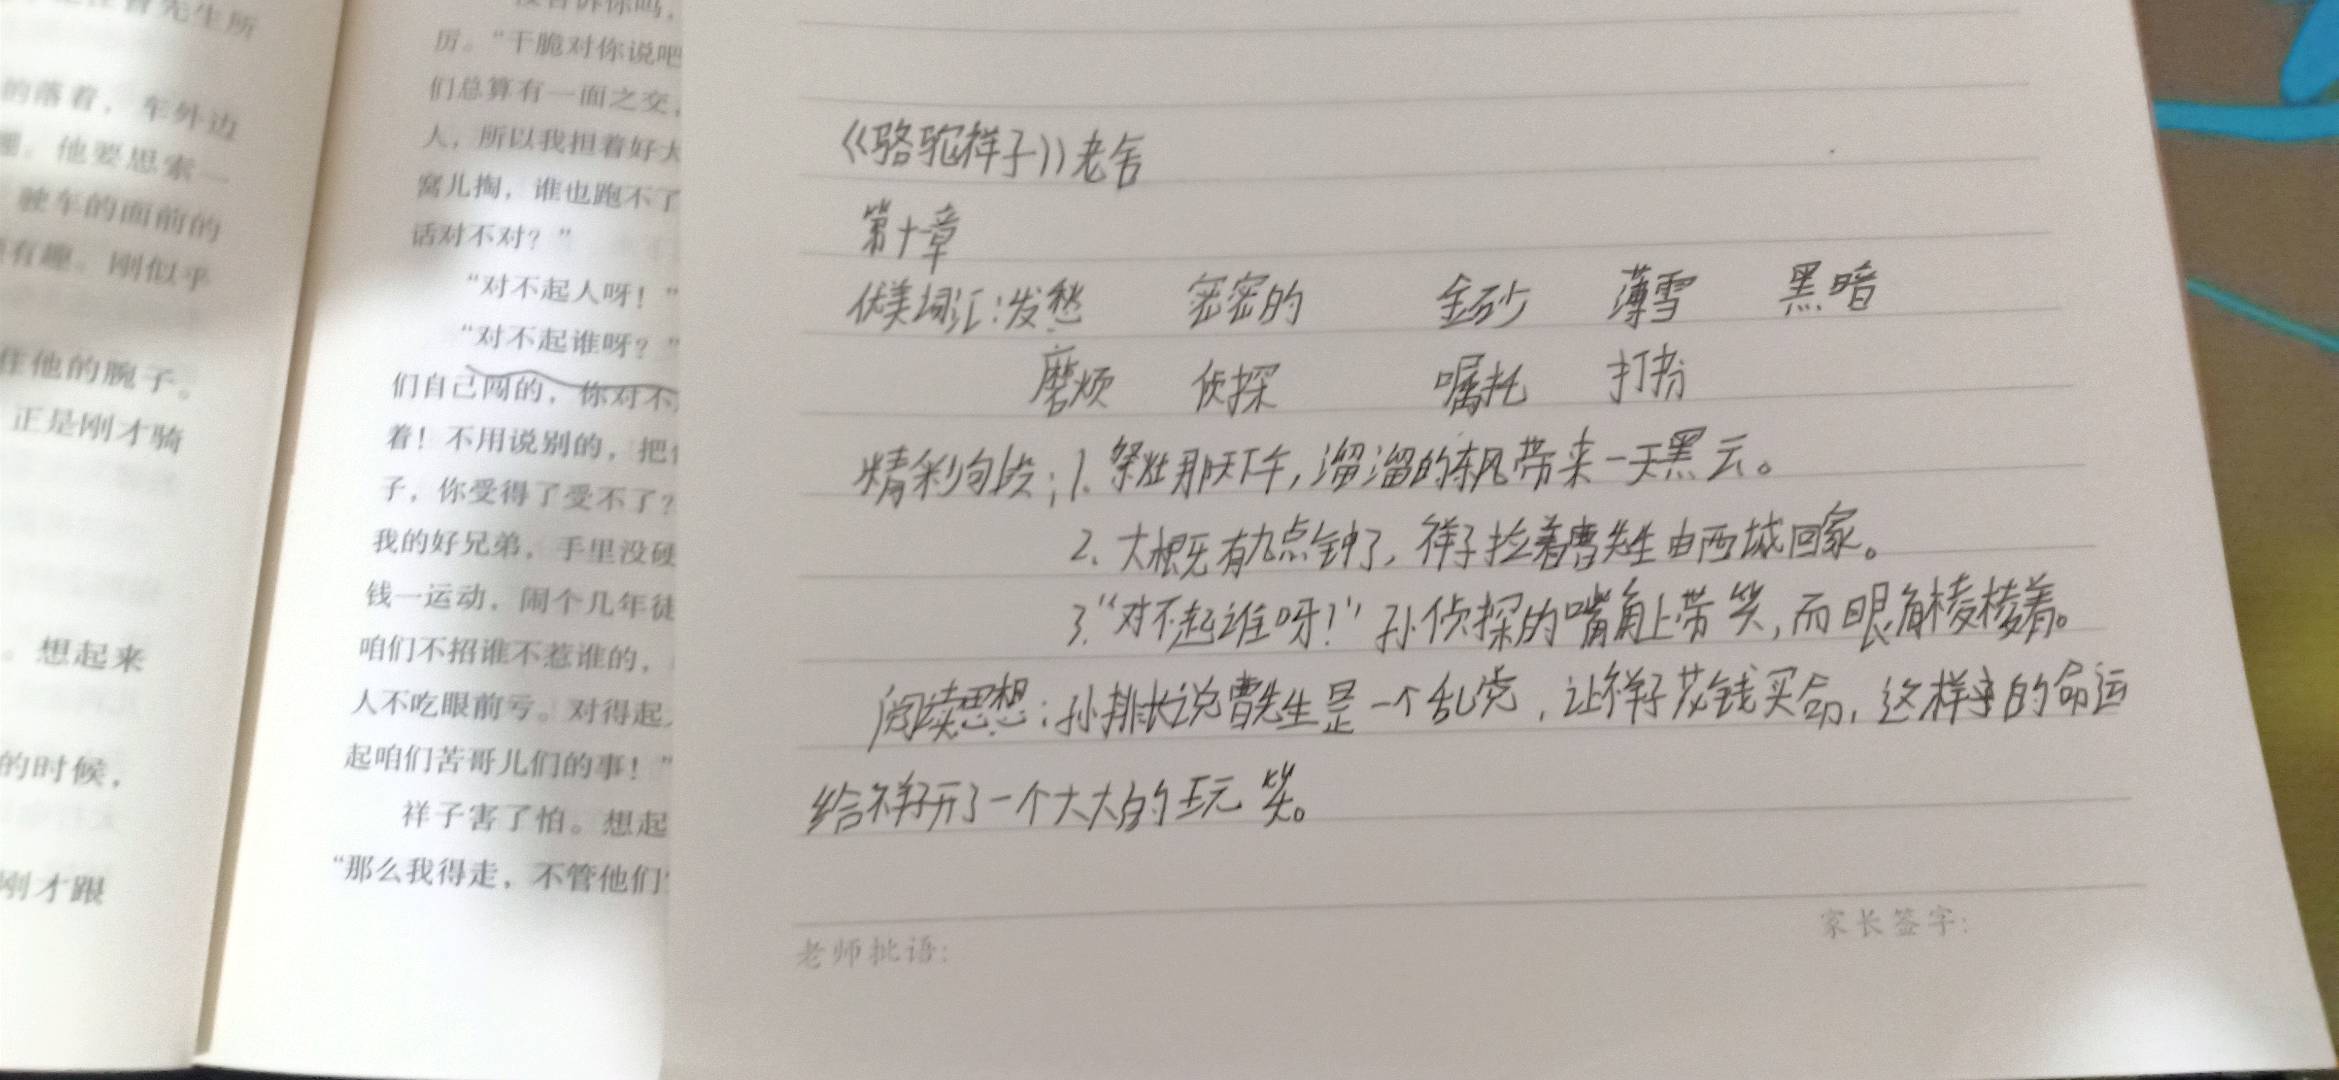 先生所
的落着，车外边
他要思索一
驶车的面前的
有趣。刚似乎
住他的腕子。
正是刚才骑
。想起来
的时候，
刚才跟
厉。“干脆对你说吧
们总算有一面之交，
人，所以我担着好大
窝儿掏，谁也跑不了
话对不对？”
“对不起人呀！”
“对不起谁呀？”
们自己闯的，你对不
着！不用说别的，把
子，你受得了受不了？
我的好兄弟，手里没硬
钱一运动，闹个几年徒
咱们不招谁不惹谁的，
人不吃眼前亏。对得起
起咱们苦哥儿们的事！”
祥子害了怕。想起
“那么我得走，不管他们
《骆驼祥子》老舍
第十一章
优美词汇：发愁 密密的 金砂 薄雪 黑暗
磨烦 侦探 嘱托 打扮
精彩句段；1. 祭灶那天下午，溜溜的东风带来一天黑云。
2、大概有九点钟了，祥子拉着曹先生由西城回家。
3.“对不起谁呀！”孙侦探的嘴角上带笑，而眼角棱棱着。
阅读思想：孙排长说曹先生是一个乱党，让祥子花钱买命，这样的命运
给祥子开了一个大大的玩笑。
老师批语：
家长签字：